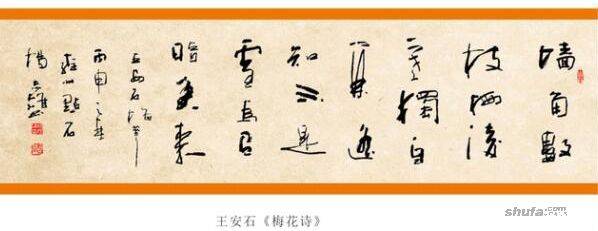 墙角数
枝梅凌
寒独自
开遥
知不是
雪为有
暗香来
王安石
丙申之
點石
楊
王安石《梅花诗》
shufa.com